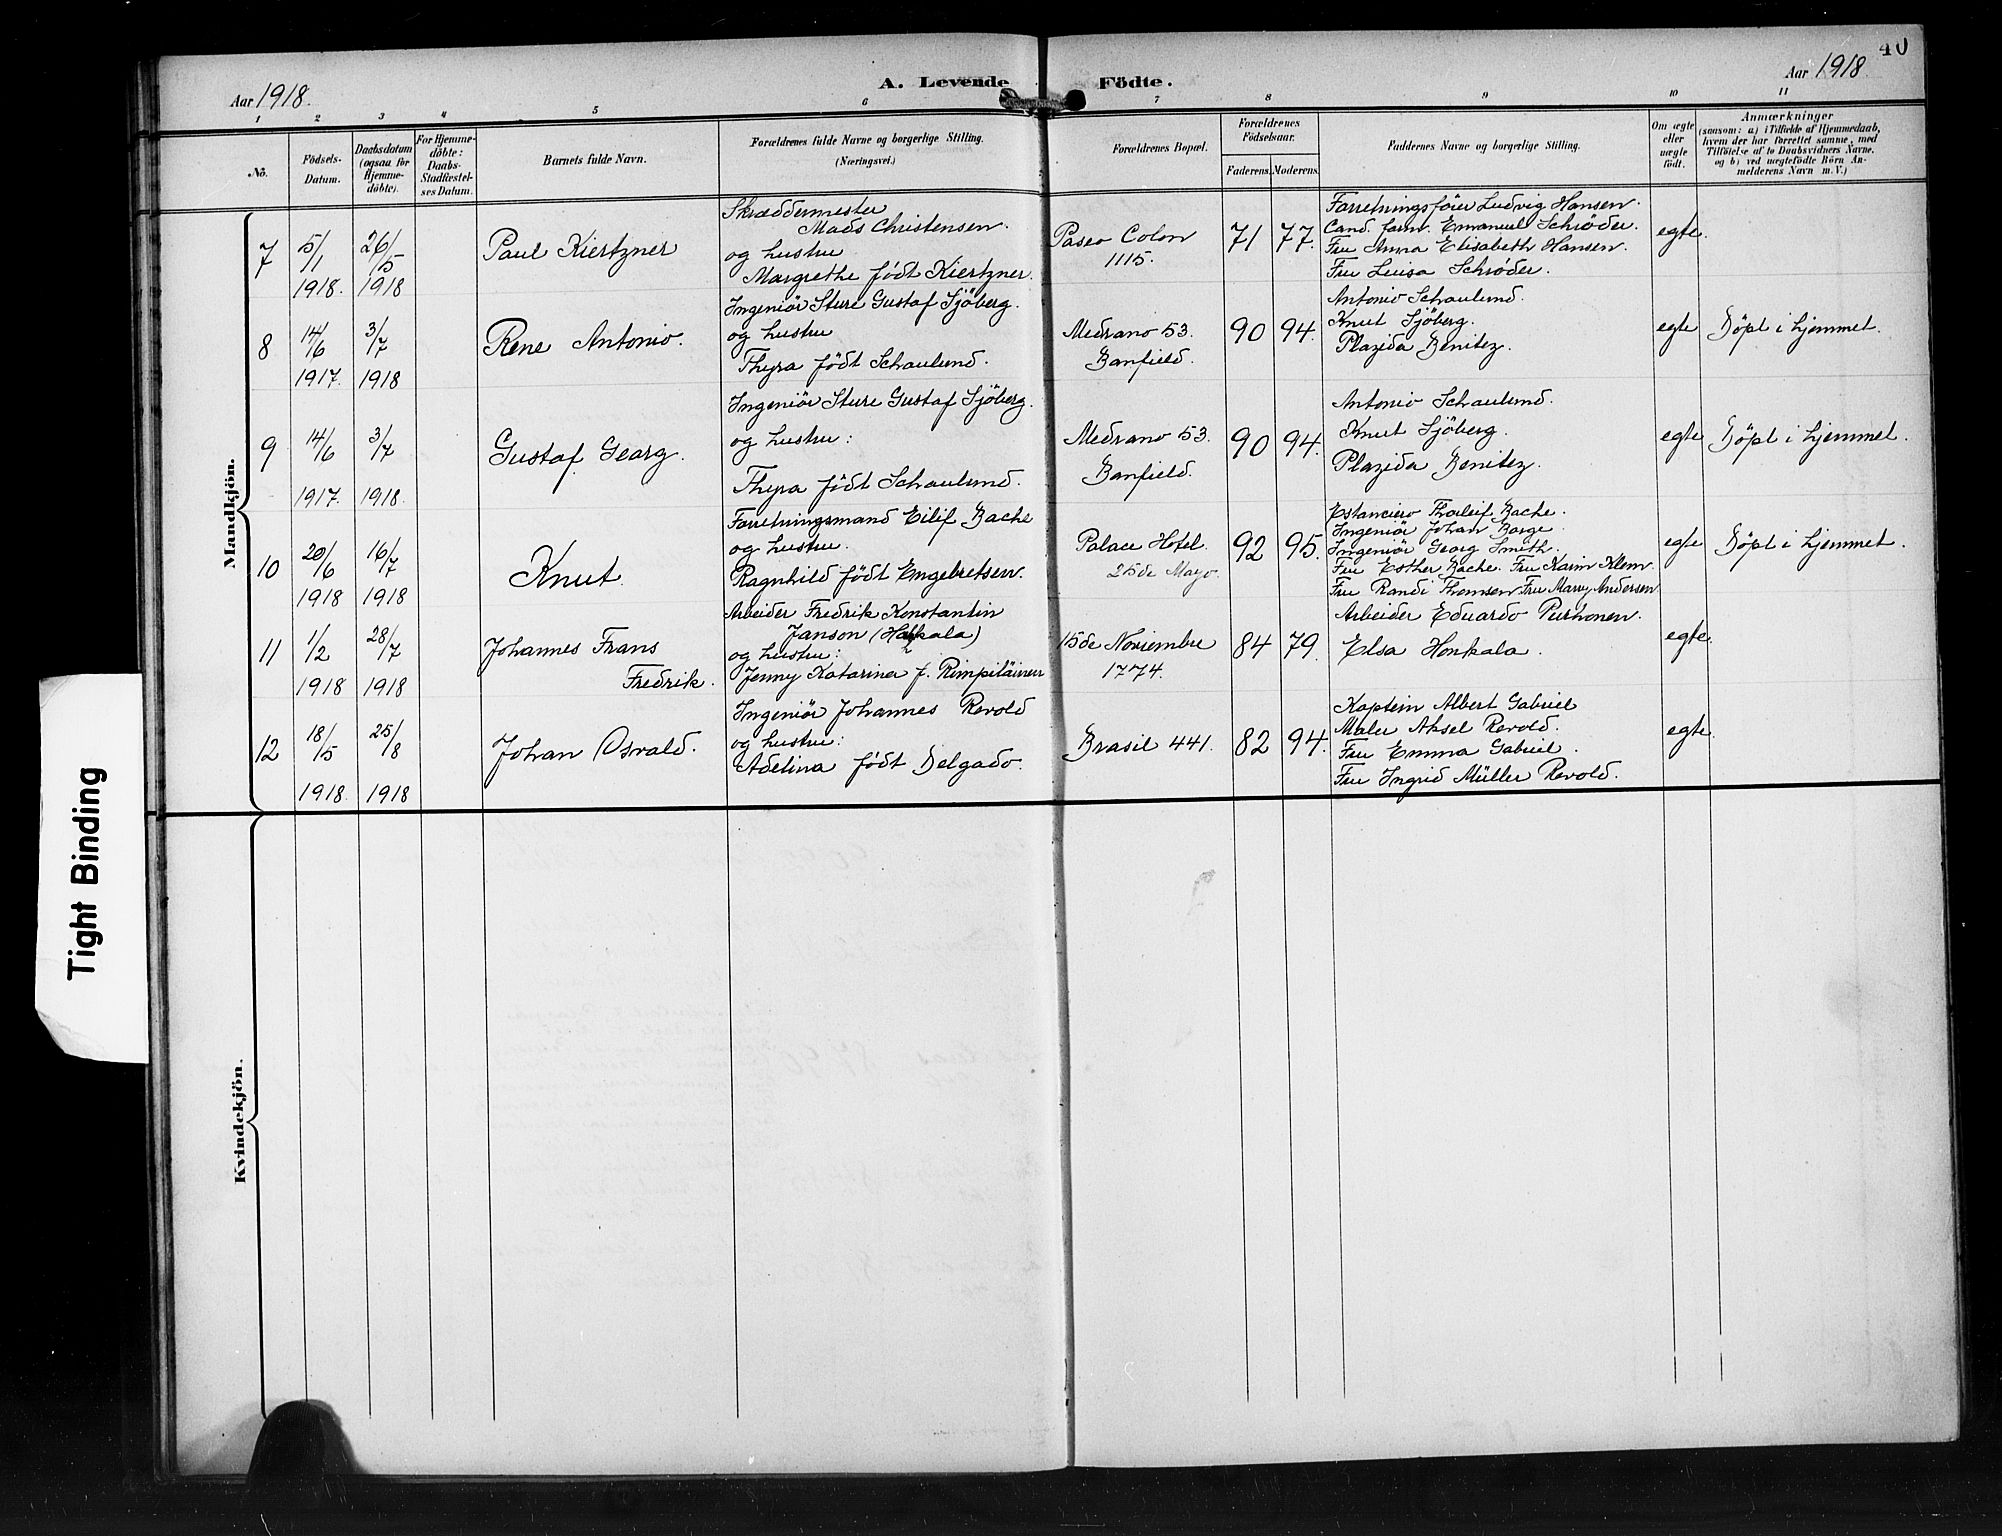 40
Aar 1918.
A. Levende Födte.
Aar 1918.
1 2 3 4 5 6 7 8 9 10 11
Nö.
Födsels-
Datum.
Daabsdatum
(ogsaa for
Hjemme-
döbte).
For Hjemme-
döbte:
Daabs-
Stadfæstel-
ses Datum.
Barnets fulde Navn.
Forældrenes fulde Navne og borgerlige Stilling.
(Næringsvei.)
Forældrenes Bopæl.
Forældrenes
Födselsaar.
Faderens. Moderens.
Faddernes Navne og borgerlige Stilling.
Om ægte
eller
uægte
födt.
Anmærkninger
(saasom: a) i Tilfælde af Hjemmedaab,
hvem der har forrettet samme, med
Tilföielse af to Daabsvidners Navne,
og b) ved uægtefödte Börn An-
melderens Navn m. V.)
Mandkjön.
7
5/1
1918.
26/5
1918
Paul Kiertzner
Skræddermester
Mads Christensen.
og hustru
Margrethe født Kiertzner.
Paseo Colon
1115.
71 77.
Forretningsfører Ludvig Hansen.
Cand. farm. Emanuel Schrøder.
Fru Anna Elisabeth Hansen.
Fru Luisa Schrøder.
egte.
8
14/6
1917.
3/7
1918
Rene Antonio.
Ingeniör Sture Gustaf Sjöberg.
og hustru
Thyra født Schaulund.
Medrano 53.
Banfield.
90 94.
Antonio Schaulund.
Knut Sjöberg.
Plazida Benitez.
egte
Döpt i hjemmet.
9
14/6
1917.
3/7
1918.
Gustaf Georg.
Ingeniör Sture Gustaf Sjöberg.
og hustru:
Thyra født Schaulund.
Medrano 53.
Banfield.
90 94.
Antonio Schaulund.
Knut Sjöberg.
Plazida Benitez.
egte
Döpt i hjemmet.
10
20/6
1918
16/7
1918
Knut.
Forretningsmand Eilif Bache
og hustru.
Ragnhild født Engebretsen.
Palace Hotel.
25 de Mayo.
92 95.
Estanciero Thorleif Bache.
Ingeniör Johan Borge.
Ingeniör Georg Smith.
Fru Esther Bache. Fru Karin Klem.
Fru Randi Thomsen Fru Marry Andersen
egte
Döpt i hjemmet.
11
1/2
1918
28/7
1918
Johannes Frans
Fredrik.
Arbeider Fredrik Konstantin
Janson
og hustru:
Jenny Katarina f. Rimpiläinen
15 de Noviembre
1774.
84 79.
Arbeider Eduardo Purhonen.
Elsa Honkala.
egte.
12
18/5
1918.
25/8
1918
Johan Osvald.
Ingeniör Johannes Revold
og hustru:
Adelina født Delgado.
Brasil 441.
82 94.
Kaptein Albert Gabriel
Maler Aksel Revold.
Fru Emma Gabriel.
Fru Ingrid Müller Revold.
egte.
Kvindekjön.
Tight Binding